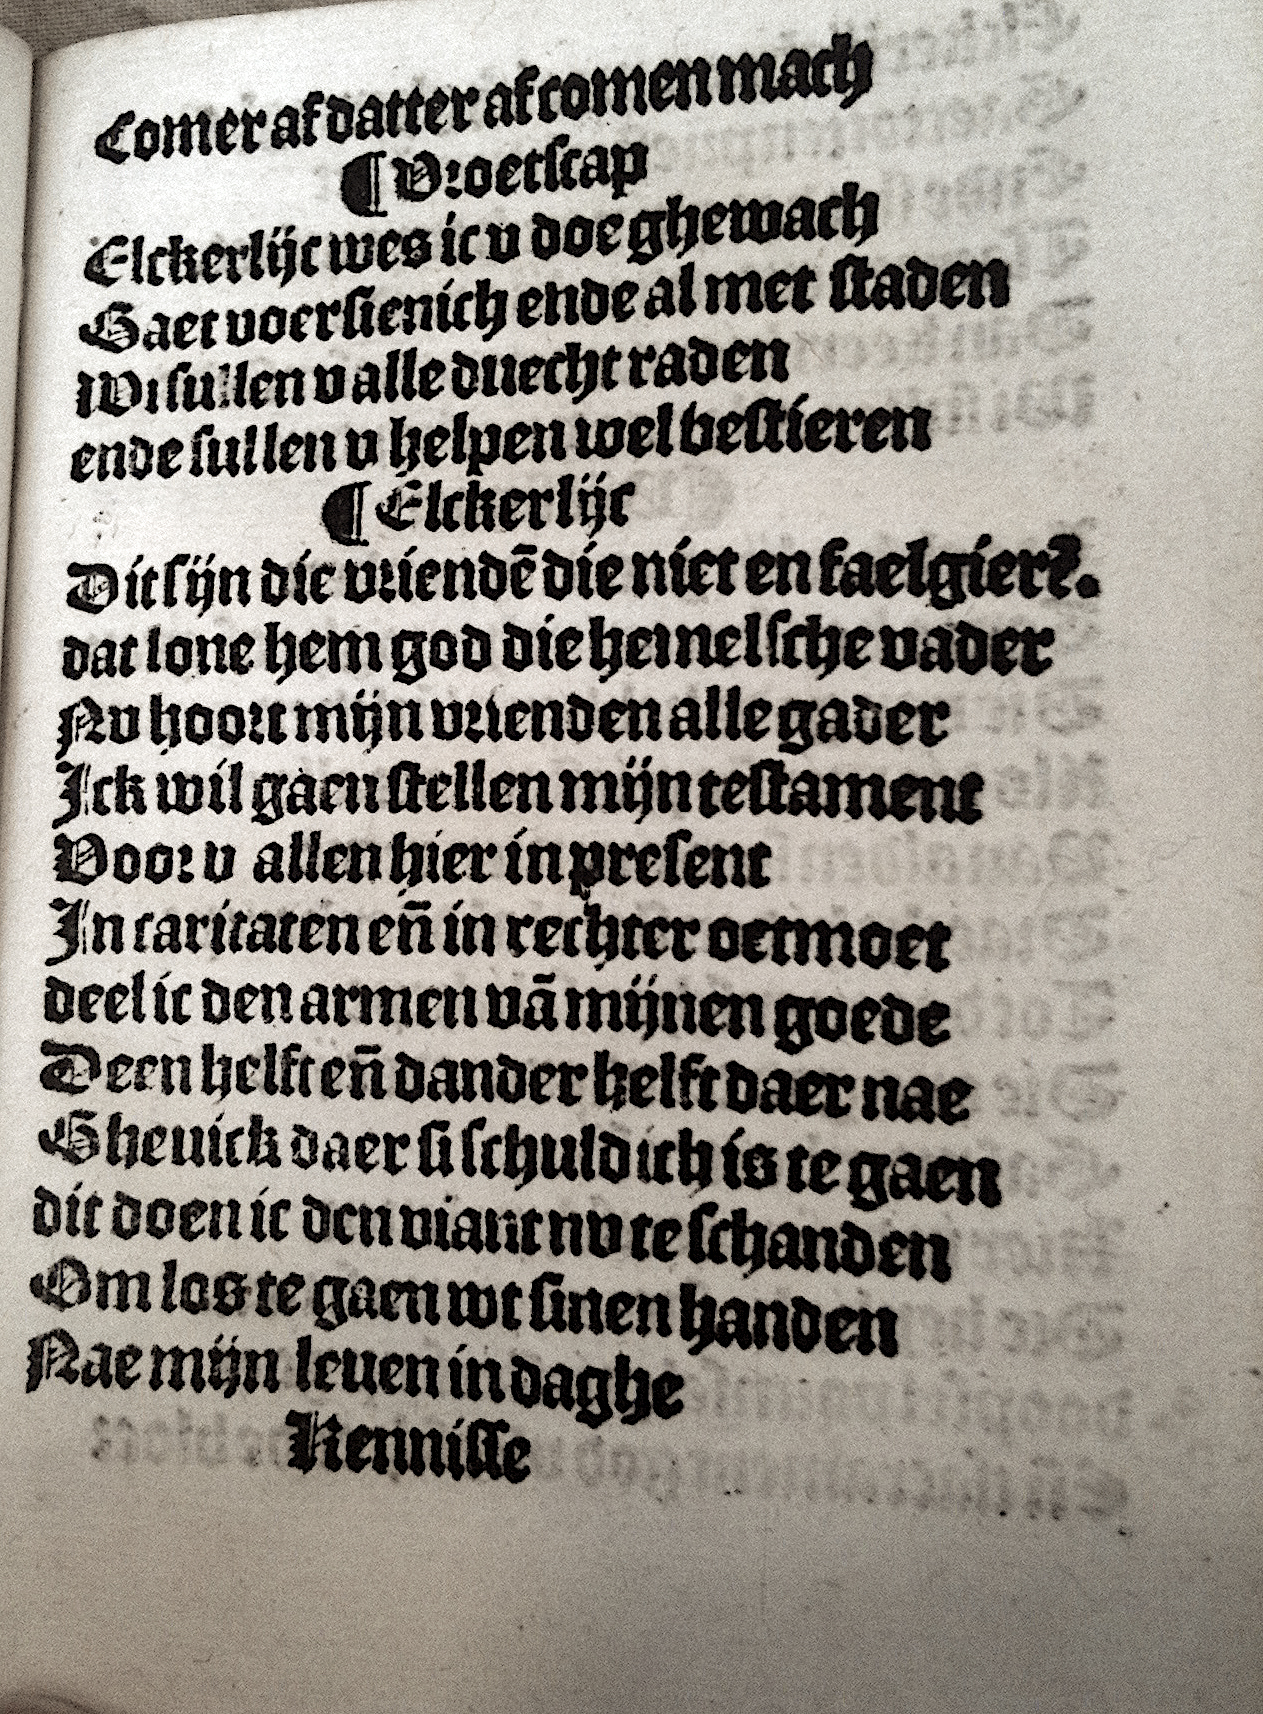 Comer af datter af comen mach
¶ Vroetscap
Elckerlijc wes ic v doe ghewach
Gaet voersienich ende al met staden
Wi sullen v alle duecht raden
ende sullen v helpen wel bestieren
¶ Elckerlijc
Dit sijn die vriendē die niet en faelgierē.
dat lone hem god die hemelsche vader
Nv hoort mijn vrienden alle gader
Ick wil gaen stellen mijn testament
Voor v allen hier in present
In caritaten eñ in rechter oetmoet
deel ic den armen vā mijnen goede
Deen helft eñ dander helft daer nae
Gheuick daer si schuldich is te gaen
dit doen ic den viant nv te schanden
Om los te gaen wt sinen handen
Nae mijn leuen in daghe
Kennisse